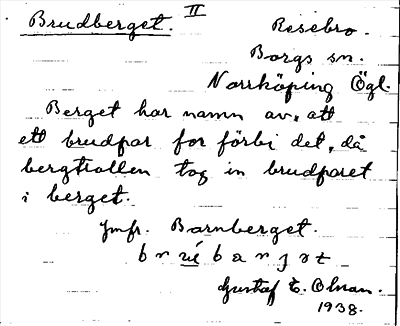 Brudberget. II Resebro.
Borgs sn.
Norrköping Ögl.
Berget har namn av, att
ett brudpar for förbi det, då
bergtrollen tog in brudparet
i berget.
Jmfr. Barnberget.
Gustaf E. Olman.
1938.